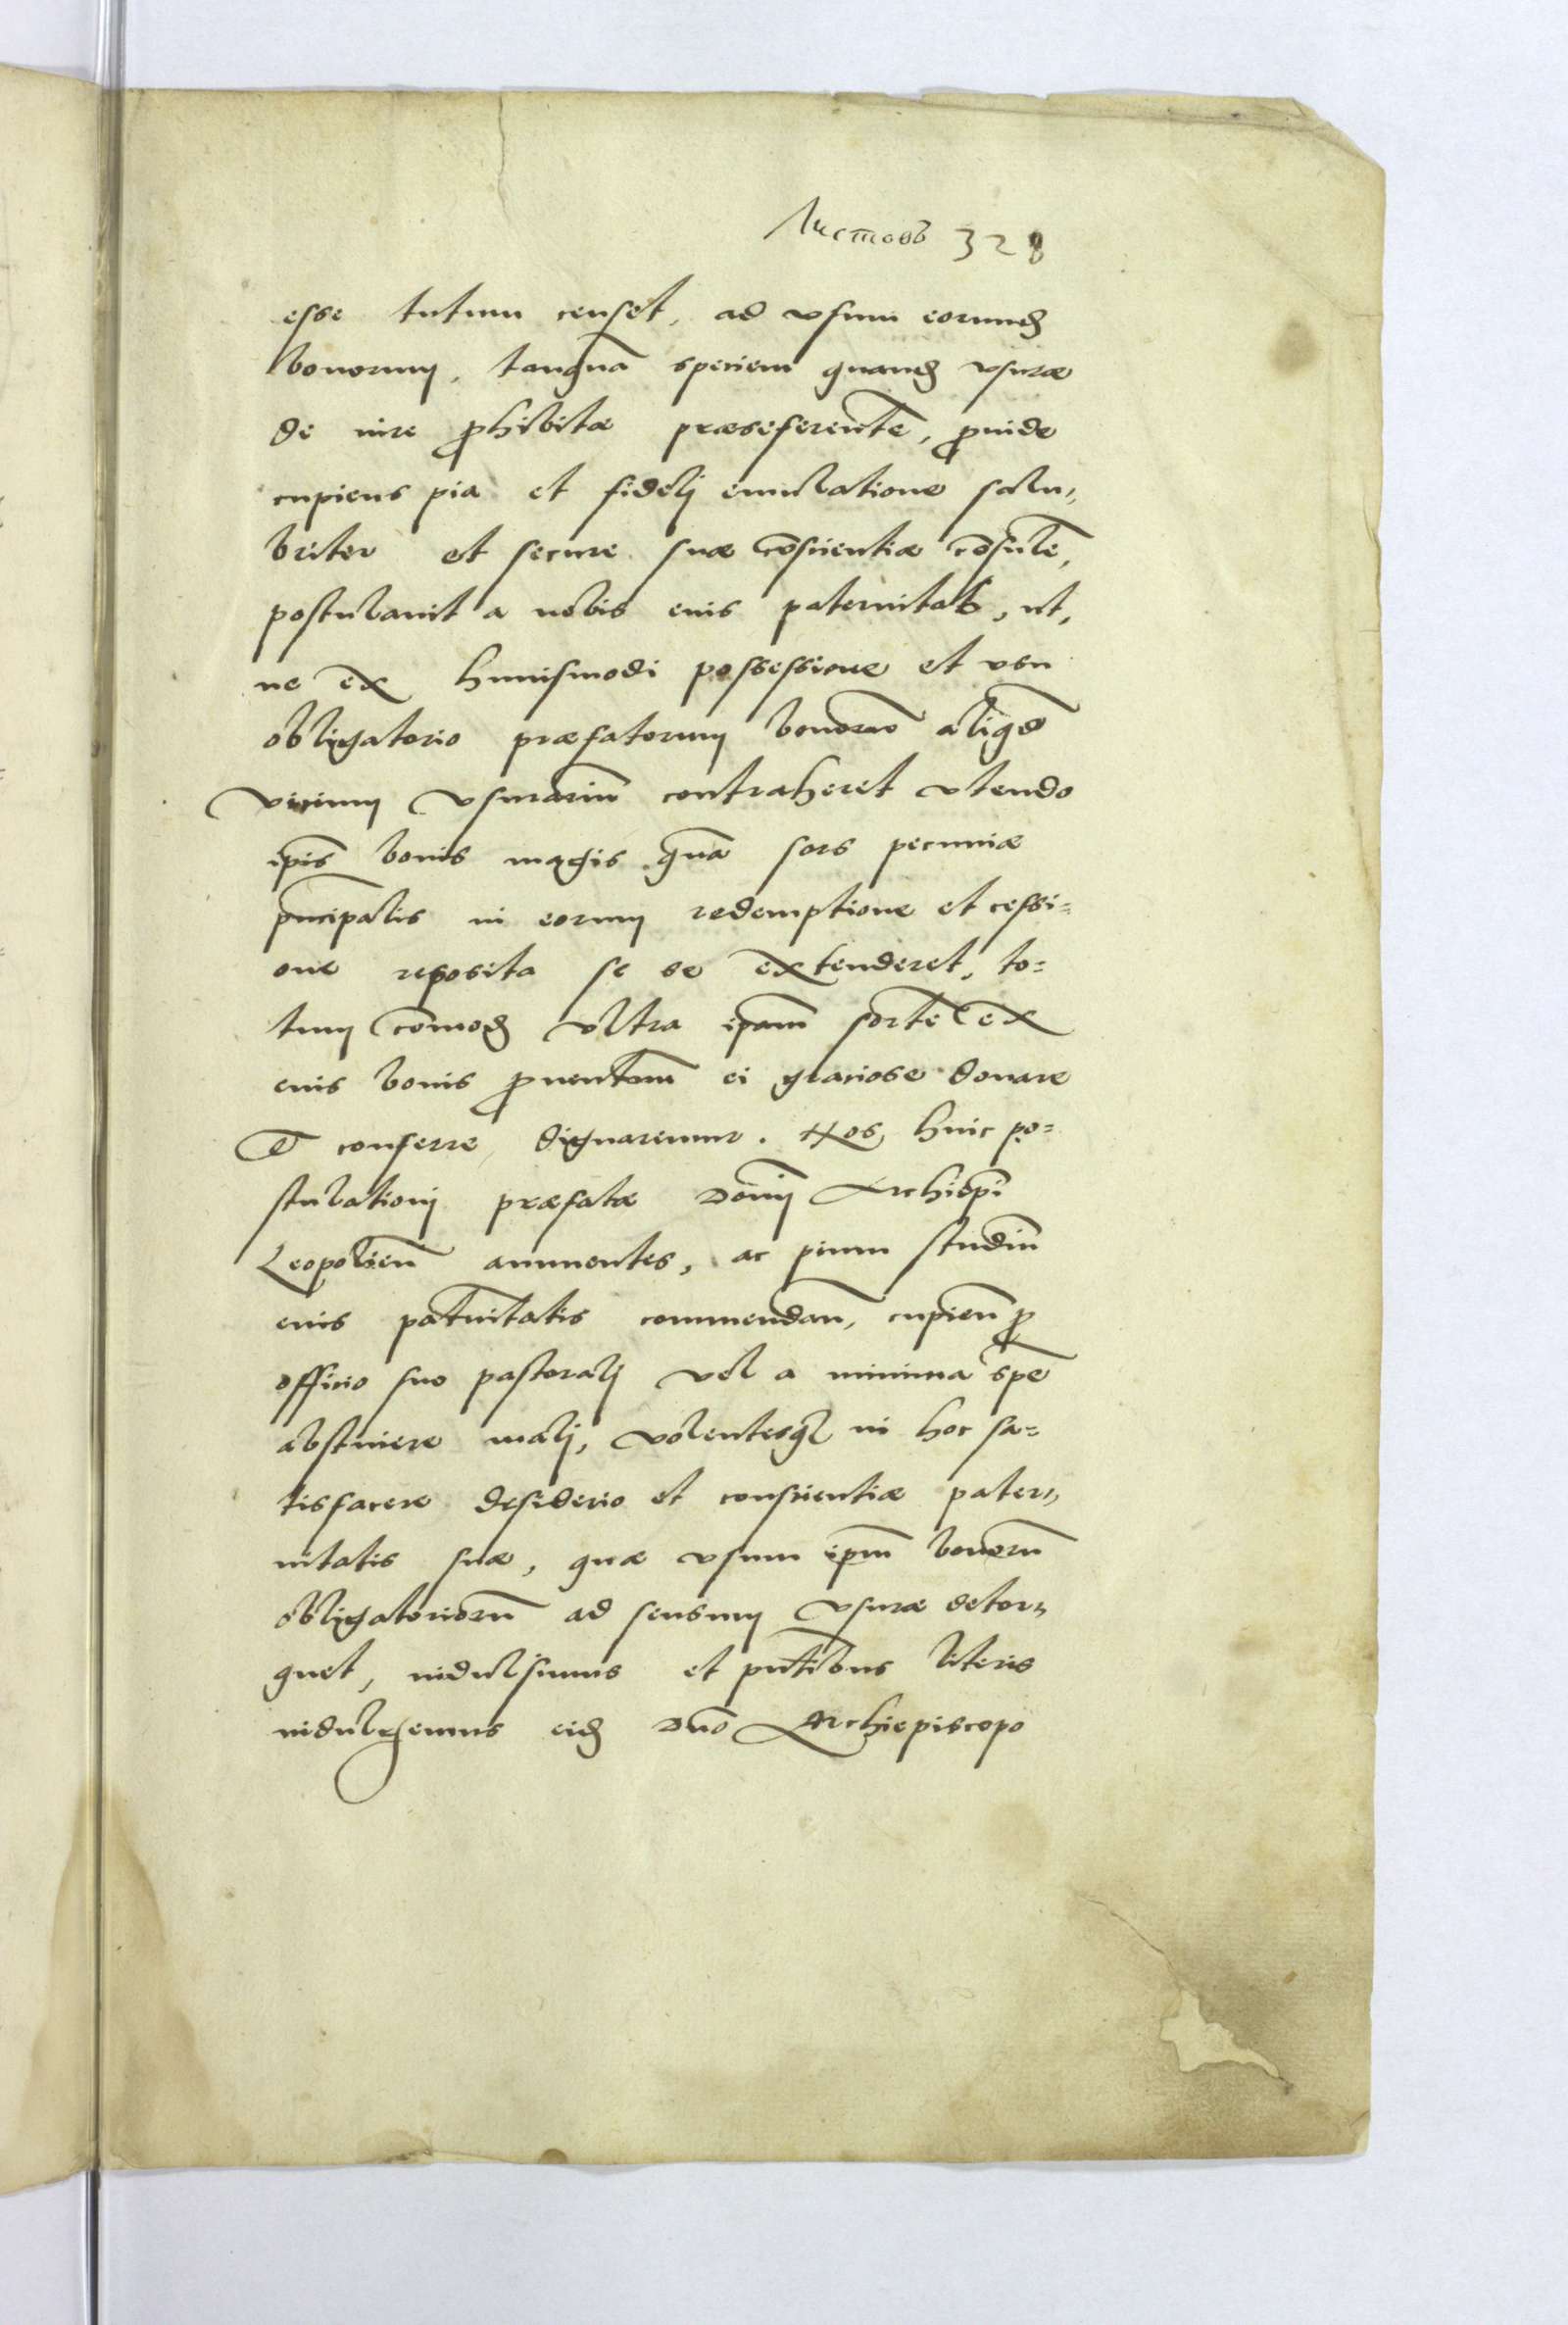 Листовъ 328
esse tutum censet, ad vsum eorund
bonorum, tanquā speciem quand vsuræ
de iure ꝓhibitæ præseferentē, ꝓinde
cupiens pia et fidelj emulatione salu„
briter et secure suæ cōscientiæ cōsulē,
postulauit a nobis eius paternitas, ut,
ne ex huiusmodi possessione et vsu
obligatorio præfatorum bonorū aliqd̄
vicium vsurariū contraheret vtendo
ip̄is bonis magis quā sors pecuniæ
pn̄cipalis in eorum redemptione et cessi=
one reposita se se extenderet, to=
tum cōmod vltra ip̄am sortē ex
eius bonis ꝓuentum̄ ei graciose donare
et conferre dignaremur. Nos huic po=
stulationj præfatæ Domīj Archiepī
Leopolien̄ annuentes, ac pium studiū
eius patnītatis commendan̄, cupien̄ ꝓ
officio suo pastoralj vel a minima spē
abstinere malj, volentesqꝫ in hoc sa=
tisfacere desiderio et conscientiæ pater„
nitatis suæ, quæ vsum ip̄m bonorū
obligatoriorū ad sensum vsuræ detor„
quet, indulsimus et pn̄tibus literis
indulgemus eid Dn̄o Archiepiscopo